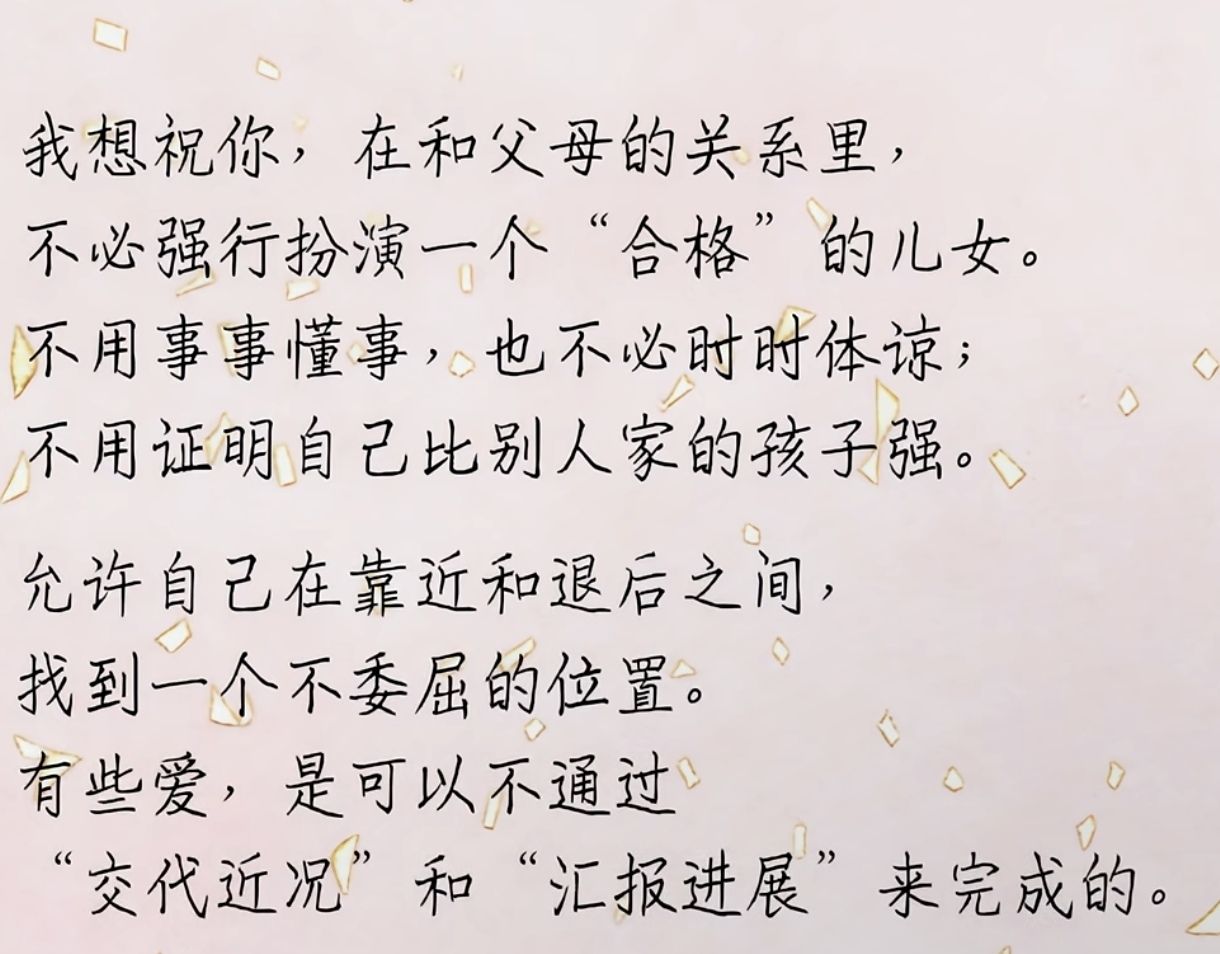 我想祝你，在和父母的关系里，
不必强行扮演一个“合格”的儿女。
不用事事懂事，也不必时时体谅；
不用证明自己比别人家的孩子强。
允许自己在靠近和退后之间，
找到一个不委屈的位置。
有些爱，是可以不通过
“交代近况”和“汇报进展”来完成的。